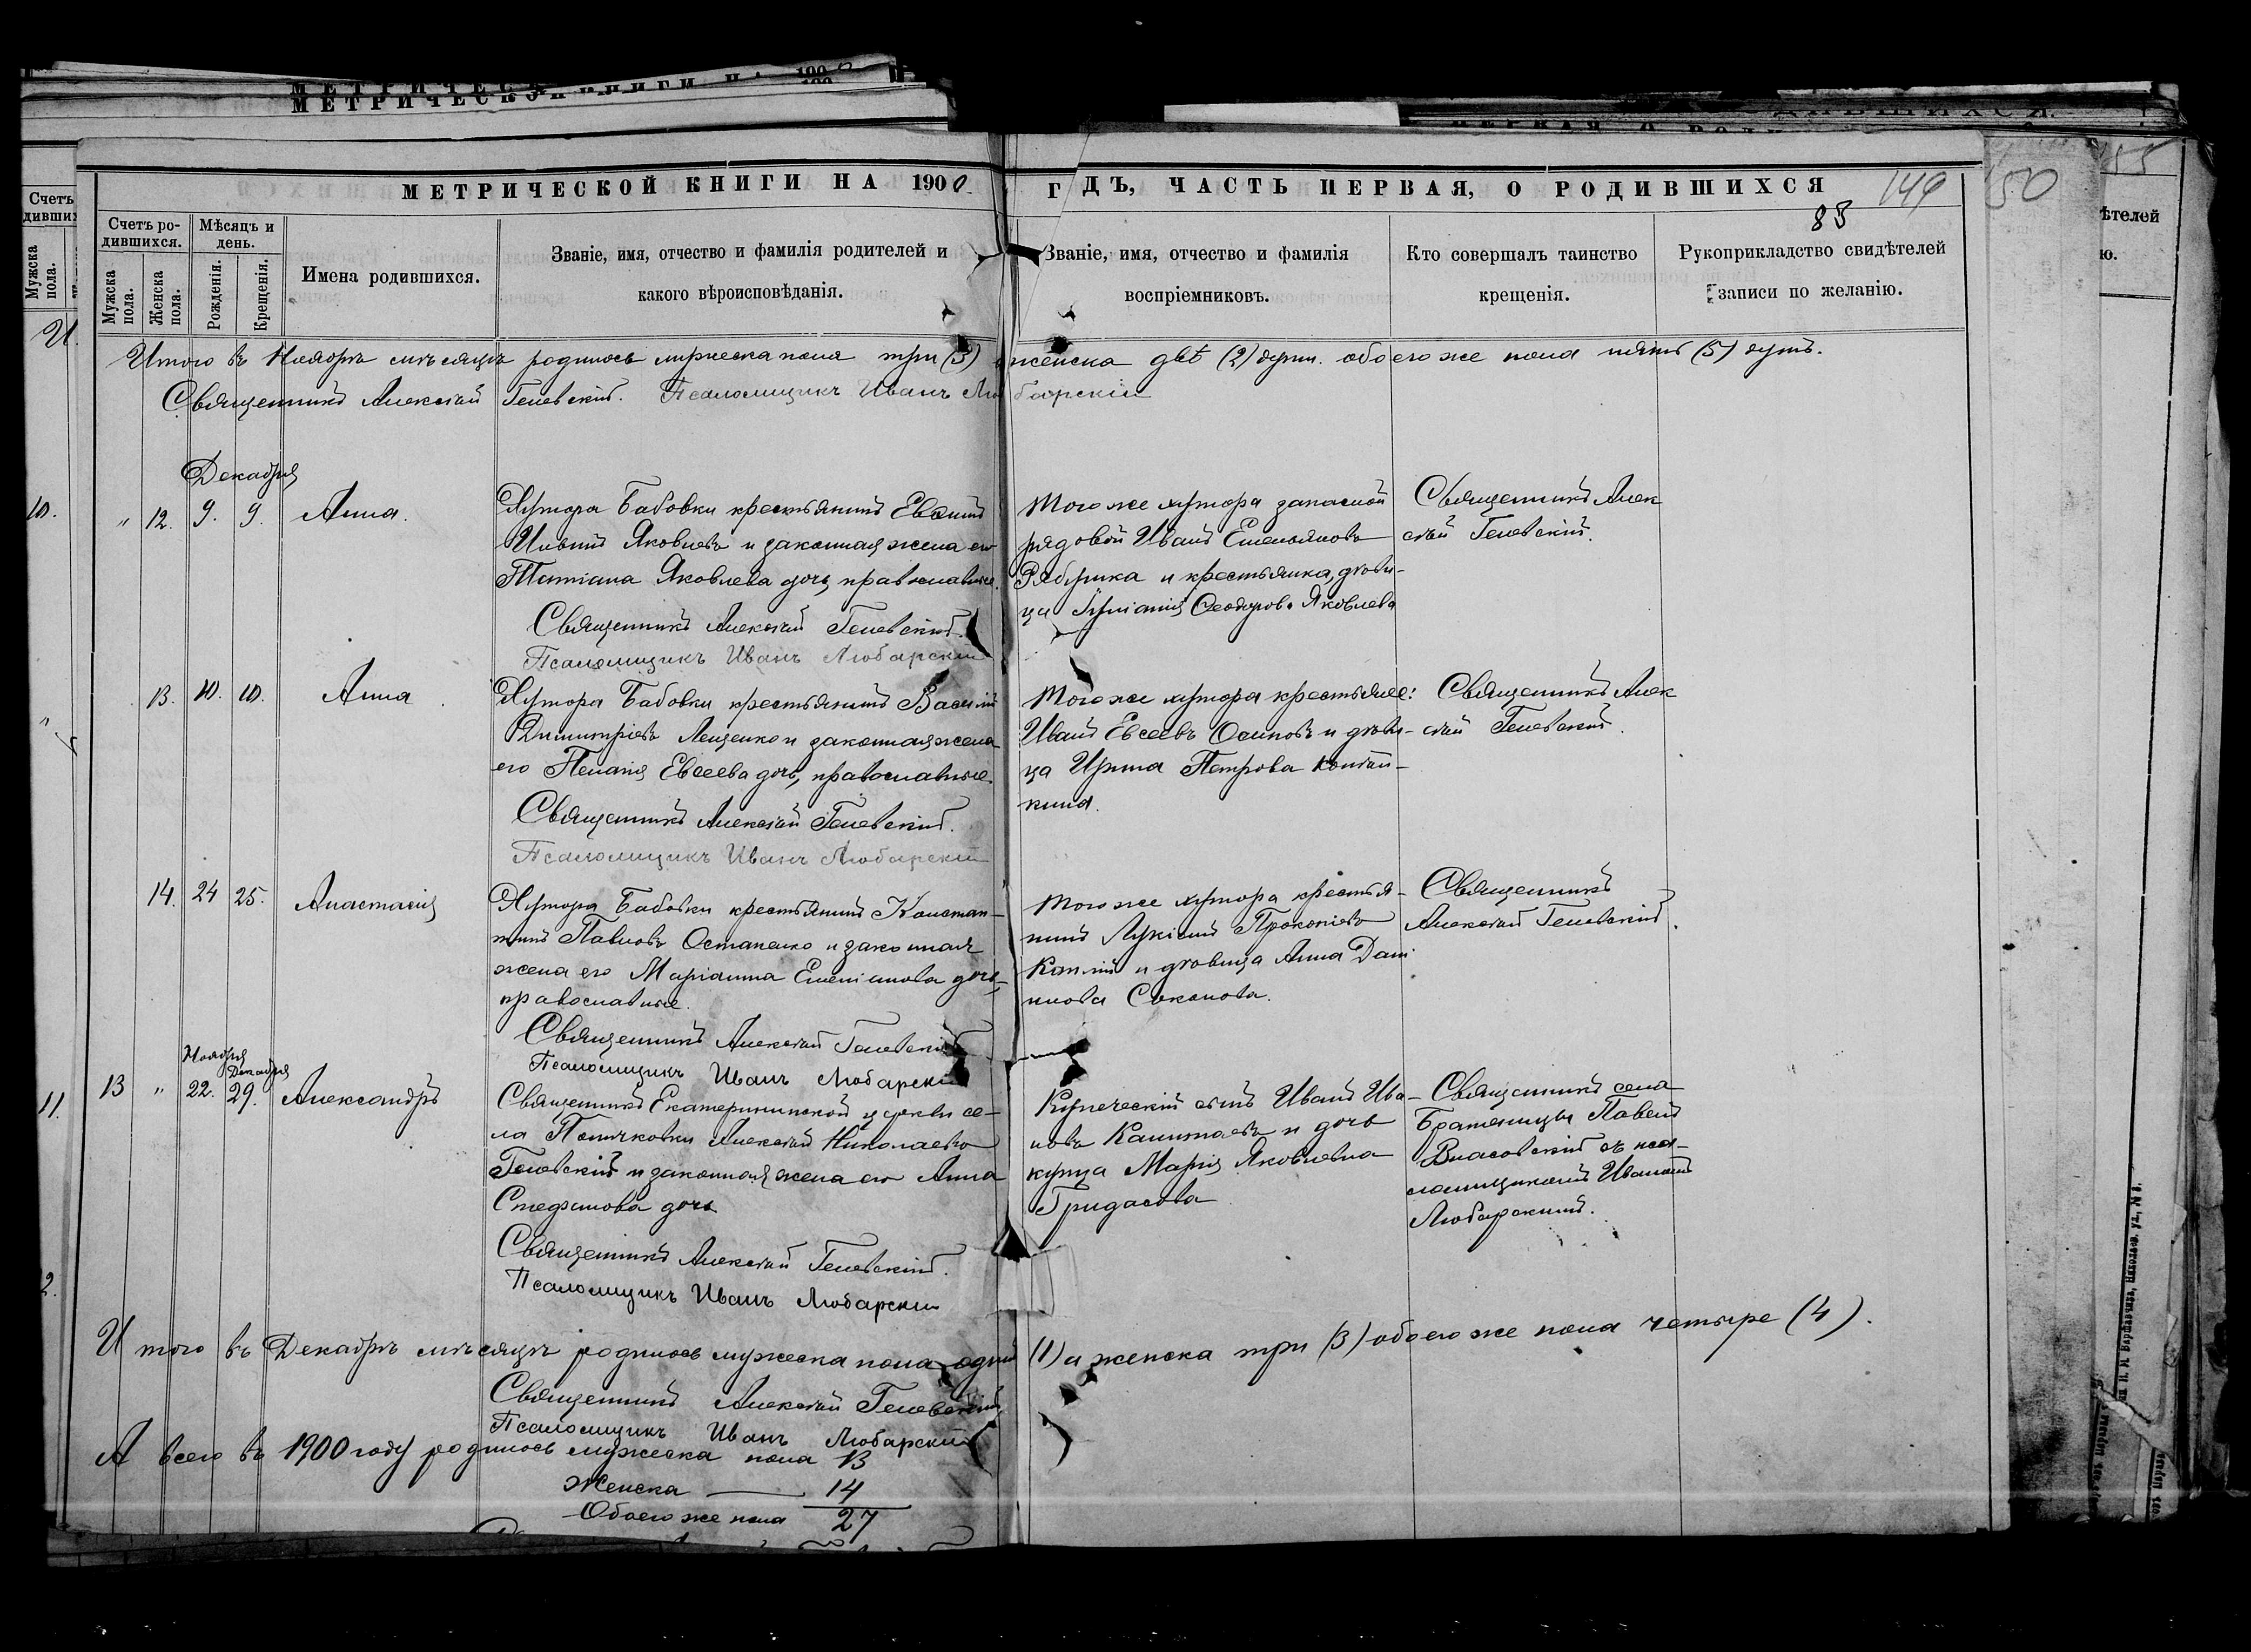 МЕТРИЧЕСКОЙ КНИГИ НА 1900
Г ДЪ, ЧАСТЬ ПЕРВАЯ, О РОДИВШИХСЯ
149
50
55
88
Счетъ ро-
дившихся.
Мѣсяцъ и
день.
Мужска
пола.
Женска
пола.
Рожденія.
Крещенія.
Имена родившихся.
Званіе, имя, отчество и фамилія родителей и
какого вѣроисповѣданія.
Званіе, имя, отчество и фамилія
воспріемниковъ.
Кто совершалъ таинство
крещенія.
Рукоприкладство свидѣтелей
записи по желанію.
Итого въ Ноябрѣ мѣсяцѣ родилось мужеска пола три (3) а женска двѣ (2) души. обоего же пола пять (5) душъ.
Священникъ Алексѣй Гелевскій. Псаломщикъ Иванъ Любарскій
Декабря
" 12. 9. 9. Анна.
Хутора Бабовки крестьянинъ Евѳимій
Яковлевъ и законная жена его
Татіана Яковлева дочь, православные.
Священникъ Алексѣй Гелевскій.
Псаломщикъ Иванъ Любарскій
Того же хутора запасной
рядовой Иванъ Емельяновъ
Рябушка и крестьянка, дѣви-
ца Іуліанія Ѳеодорова Яковлева
Священникъ Алек
сѣй Гелевскій.
13. 10. 10. Анна
Хутора Бабовки крестьянинъ Василій
Димитріевъ Лещенко и законная жена
его Пелагія Евсеева дочь, православные.
Священникъ Алексѣй Гелевскій.
Псаломщикъ Иванъ Любарскій
Того же хутора крестьяне:
Иванъ Евсеевъ Осиповъ и дѣви-
ца Ирина Петрова
кина.
Священникъ Алек
сѣй Гелевскій.
14. 24 25. Анастасія
Хутора Бабовки крестьянинъ Констан-
тинъ Павловъ Остапенко и законная
жена его Маріанна Емеліанова дочь,
православные.
Священникъ Алексѣй Гелевскій
Псаломщикъ Иванъ Любарскій
Того же хутора крестья-
нинъ Лукіанъ Прокопіевъ
Каплій и дѣвица Анна Дані
илова Соколова.
Священникъ
Алексѣй Гелевскій.
Ноября
Декабря
13 " 22. 29. Александръ
Священникъ Екатерининской церкви се-
ла Поличковки Алексѣй Николаевъ
Гелевскій и законная жена его Анна
Стефанова дочь
Священникъ Алексѣй Гелевскій.
Псаломщикъ Иванъ Любарскій
Купеческій сынъ Иванъ Ива-
новъ и дочь
купца Марія Яковлевна
Гридасова
Священникъ села
Братеницы Павелъ
Власовскій съ пса-
ломщикомъ Иваномъ
Любарскимъ.
Итого въ Декабрѣ мѣсяцѣ родилось мужеска пола одинъ (1) а женска три (3) обоего же пола четыре (4).
Священникъ Алексѣй Гелевскій
Псаломщикъ Иванъ Любарскій
А всего въ 1900 году родилось мужеска пола 13
Женска — 14
Обоего же пола 27